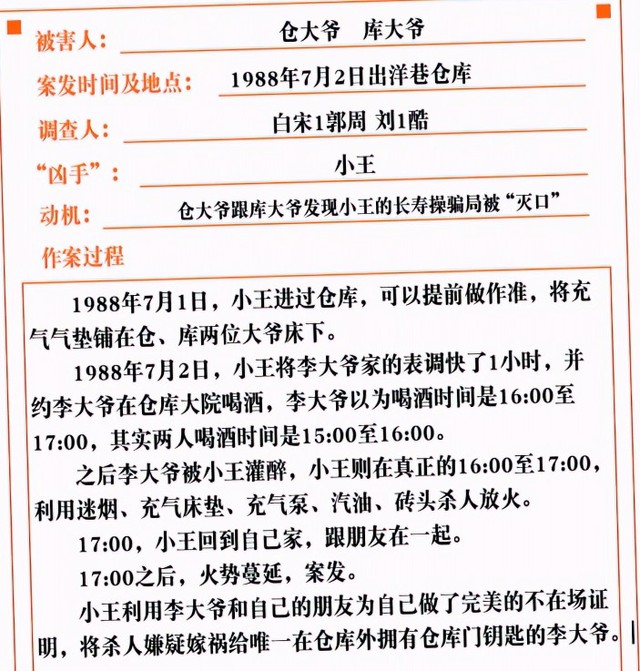 被害人： 仓大爷 库大爷
案发时间及地点： 1988年7月2日出洋巷仓库
调查人： 白宋1郭周 刘1酷
“凶手”： 小王
动机： 仓大爷跟库大爷发现小王的长寿操骗局被“灭口”
作案过程
1988年7月1日，小王进过仓库，可以提前做作准，将充
气气垫铺在仓、库两位大爷床下。
1988年7月2日，小王将李大爷家的表调快了1小时，并
约李大爷在仓库大院喝酒，李大爷以为喝酒时间是16:00至
17:00，其实两人喝酒时间是15:00至16:00。
之后李大爷被小王灌醉，小王则在真正的16:00至17:00，
利用迷烟、充气床垫、充气泵、汽油、砖头杀人放火。
17:00，小王回到自己家，跟朋友在一起。
17:00之后，火势蔓延，案发。
小王利用李大爷和自己的朋友为自己做了完美的不在场证
明，将杀人嫌疑嫁祸给唯一在仓库外拥有仓库门钥匙的李大爷。